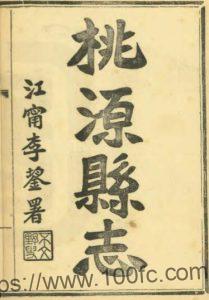 桃源縣志
江甯李鋆署
https://www.100fc.com